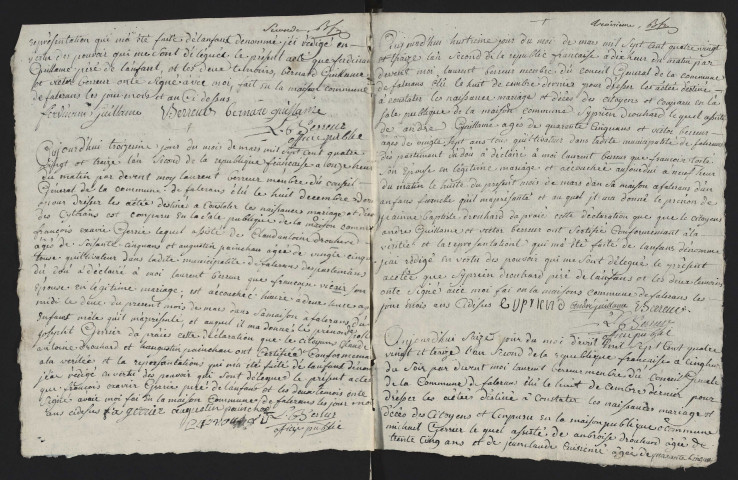 Seconde
représentation qui m'a été faite de lanfant denommé j'ai rédigé en
vertu des pouvoir qui me sont délégué le présent acte que ferdinan
Guillame père de lanfant, et les deux témoins, bernard Guillame
et victor bereur ont signé avec moi, fait en la maison commune
de falerans les jour mois et an Ci dessus
ferdinand Guillame V Bereur bernard guillame
L G Bereur
officie publie
aujourdhuy troizieme jour du mois de mars mil sept cent quatre
vingt et treize lan second de la republique francaise a onze heure
du matin par devant moy laurent bereur membre du conseil
General de la commune de falerans élu le huit decembre dernier
pour dresser les actes destiné a Constater les naissance mariage et décès
des Citoiens est comparu en la sale publique de la maison commune
françois exavier Gerrier lequel assisté de Claudantoine Drouhard
agés de soisante cinq ans et augustin painchau agés de vingt cinq
tous cultivateurs dans la dite municipalité de falerans departement
du dou a déclaré a moi laurent bereur que
Epouse en legitime mariage est accouchée
midi le du present mois de mars dans sa maison a falerans d'un
Enfant mâle qu'il m'a présenté et auquel il ma donné les prénom de
joseph Gerrier da prais cette déclaration que le citoyens Claude
antoine Drouhard et augustin painchau ont Certifié Conforme a
la verité et la représentation qui ma été faite de lanfant denommé
j'ai rédigé en vertu des pouvoirs qui me sont délégué le présent acte
que françois exavier Gerrier père de lanfant et les deux temoins ont
signé avec moi fait en la maison Commune de falerans les jour mois
et ans cidesus fx gerrier augustin painchau
L G Bereur
officie publie
troisieme
aujourdhuy huitieme jour du mois de mars mil sept cent quatre vingt
et treize lan second de la république francaise a dix heure du matin par
devant moi laurent bereur membre du conseil General de la commune
de falerans élu le huit de cembre dernier pour dresser les actes destiné
a constater les naissance mariage et décès des citoyens est comparu en la
sale publique de la maison commune Cyprien drouhard lequel assisté
de andré Guillame agés de quarente cinq ans et victor bereur
agés de sept ans tous cultivateurs dans la dite municipalité de falerans
departement du dou a déclaré a moi laurent bereur que francoise
son Epouse en légitime mariage est accouchée aujourduy a neuf heure
du matin le huitte du présent mois de mars dans sa maison a falerans d'un
anfans femelle qu'il ma présenté et auquel il ma donné le prénom de
jeanne Baptiste drouhard da prais cette déclaration que le citoyens
andre Guillame et victor bereur ont Certifié Conforme a la
vérité et la représentation qui m'a été faite de lanfant denommé
jai redigé en vertu des pouvoirs qui me sont délégué le présent
acte, que Cyprien drouhard père de lanfans et les deux temoins
ont signé avec moi fait en la maison commune de falerans les
jour mois ans cidesus Cyprien D andre guillame V Bereur
L G Bereur
officie publie
aujourdhuy seize jour du mois davril mil sept cent quatre
vingt et treize lan second de la république francaise a cinq heure
du soir par devant moi laurent bereur membre du Conseil Generale
de la Commune de falerans élu le huit de cembre dernier pour
dresser les actes déstiné a Constater les naissance mariage et
décès des Citoyens est Comparu en la maison publique commune
michael Gerrier le quel assisté de ambroise drouhard agée de
trente cinq ans et de jean claude agée de quarante cinq ans